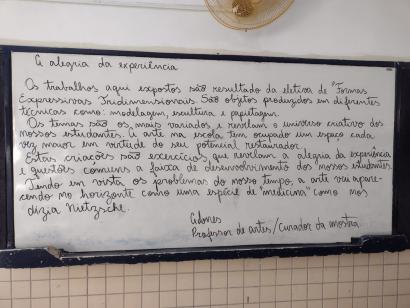 A alegria da experiência
Os trabalhos aqui expostos são resultado da eletiva de "Formas
Expressivas Tridimensionais. São objetos produzidos em diferentes
técnicas como: modelagem, escultura e papietagem.
Os temas são os mais variados e revelam o universo criativo dos
nossos estudantes. A arte na escola tem ocupado um espaço cada
vez maior em virtude do seu potencial restaurador.
Estas criações são exercícios, que revelam a alegria da experiência
e questões comuns a faixa de desenvolvimento dos nossos estudantes.
Tendo em vista os problemas do nosso tempo, a arte vai apare-
cendo no horizonte como uma espécie de "medicina" como nos
dizia Nietzsche.
Professor de artes/curador da mostra